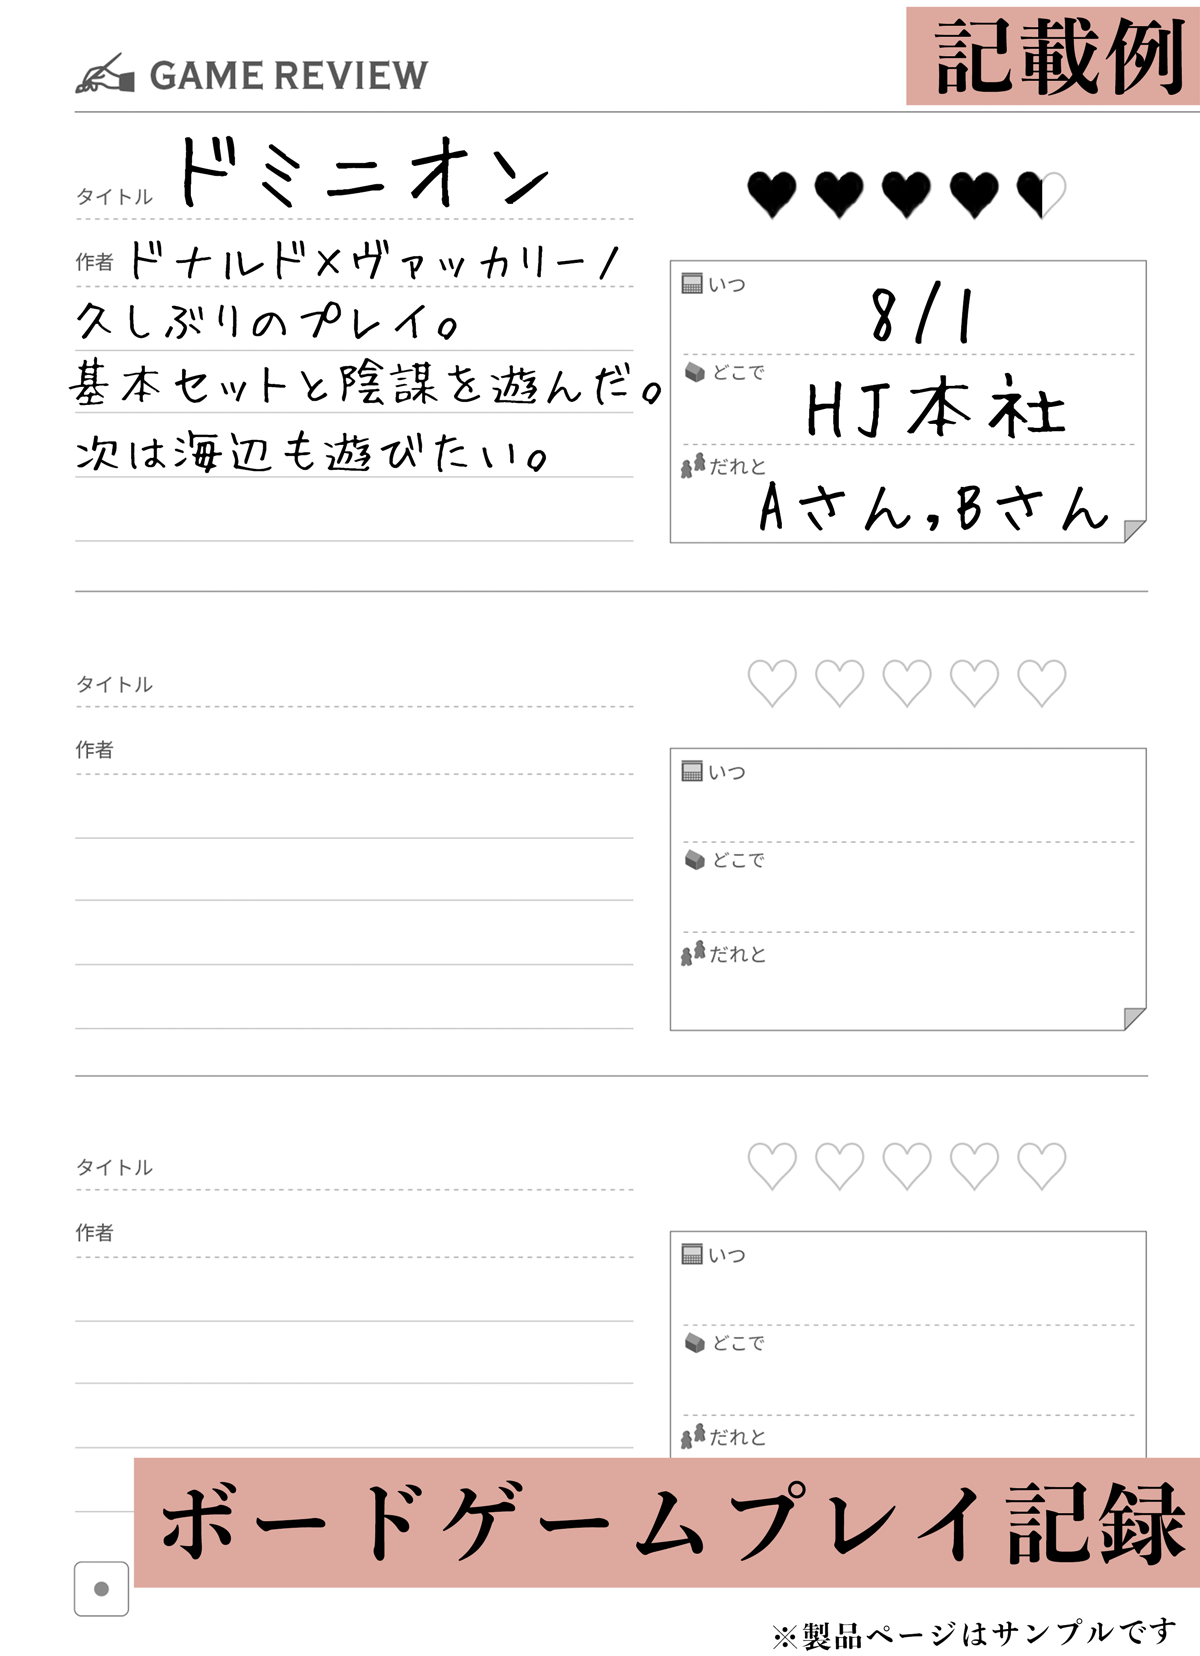 記載例
GAME REVIEW
タイトル ドミニオン
作者 ドナルド×ヴァッカリーノ
久しぶりのプレイ。
基本セットと陰謀を遊んだ。
次は海辺も遊びたい。
いつ 8/1
どこで HJ本社
だれと Aさん,Bさん
タイトル
作者
いつ
どこで
だれと
タイトル
作者
いつ
どこで
だれと
ボードゲームプレイ記録
※製品ページはサンプルです